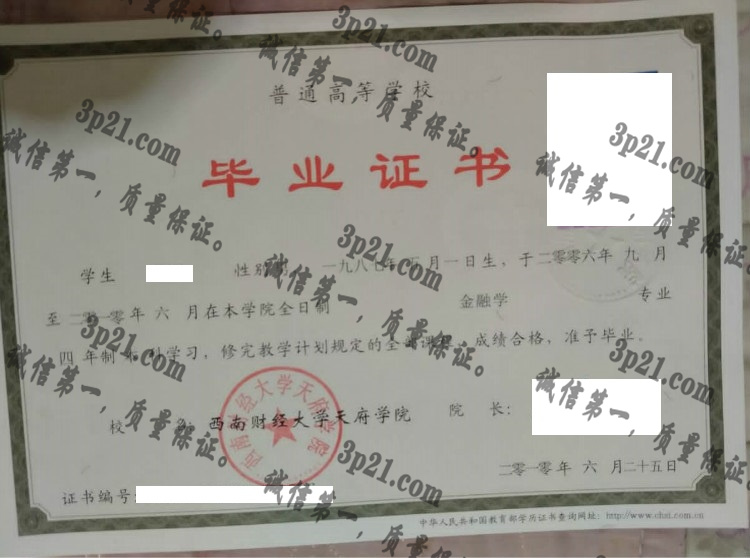 普通高等学校
毕业证书
学生 性别 一九八七年 月一日生，于二〇〇六年 九 月
至二〇一〇年 六 月在本学院全日制 金融学 专业
四 年制 本 科学习，修完教学计划规定的全部课程，成绩合格，准予毕业。
校 名：西南财经大学天府学院 院 长：
西南财经大学天府学院
二〇一〇年 六 月二十五日
证书编号：
中华人民共和国教育部学历证书查询网址：http://www.chsi.com.cn
3p21.com
诚信第一，质量保证。
3p21.com
诚信第一，质量保证。
3p21.com
诚信第一，质量保证。
3p21.com
诚信第一，质量保证。
3p21.com
诚信第一，质量保证。
3p21.com
诚信第一，质量保证。
3p21.com
诚信第一，质量保证。
3p21.com
诚信第一，质量保证。